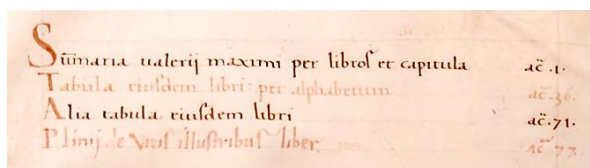 Sūmaria ualerij maximi per libros et capitula ac̄·1·
Tabula eiusdem libri: per alphabetum ac̄·36·
Alia tabula eiusdem libri ac̄·71·
Plinij de Viris illustribus liber ac̄ 77